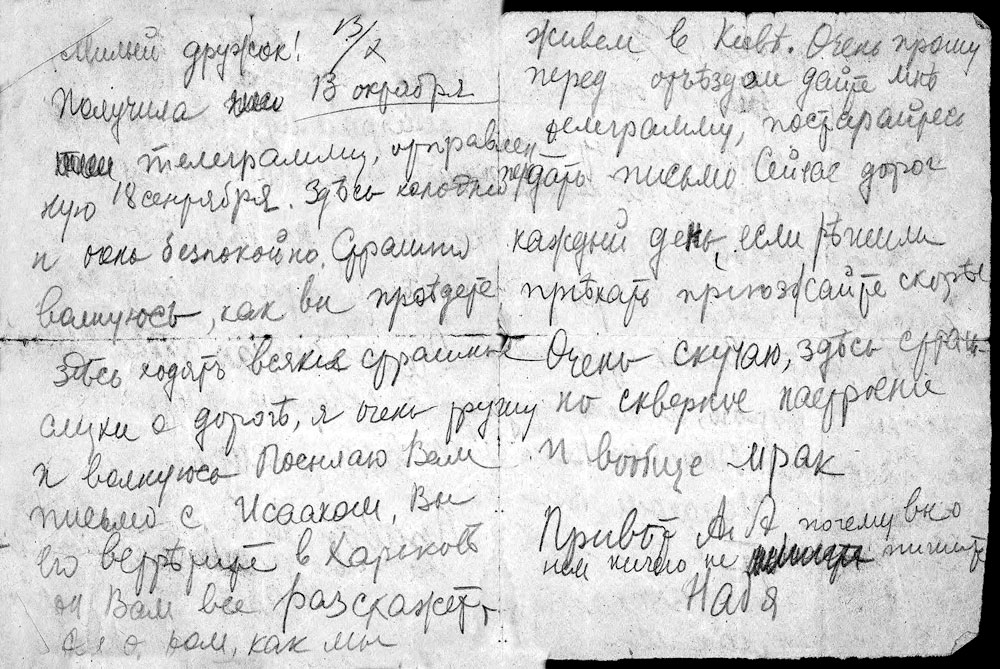 13/X
Милый дружок!
Получила 13 октября
телеграмму, отправлен
ную 18 сентября. Здѣсь холодно
и очень безпокойно. Страшно
волнуюсь, как вы проѣдете
Здѣсь ходятъ всякие страшные
слухи о дорогѣ, я очень грущу
и волнуюсь Посылаю Вам
письмо с Исааком, Вы
его встрѣтите в Харьковѣ
он Вам все разскажет
о том, как мы
живем в Киевѣ. Очень прошу
перед отъѣздом дайте мнѣ
телеграмму, постарайтесь
дать письмо Сейчас дорог
каждый день, если рѣшили
приѣхать приѣзжайте скорѣе
Очень скучаю, здѣсь страш-
но скверное настроение
и вообще мрак
Привѣт А. А почему вы о
нем ничего не пишите
Надя